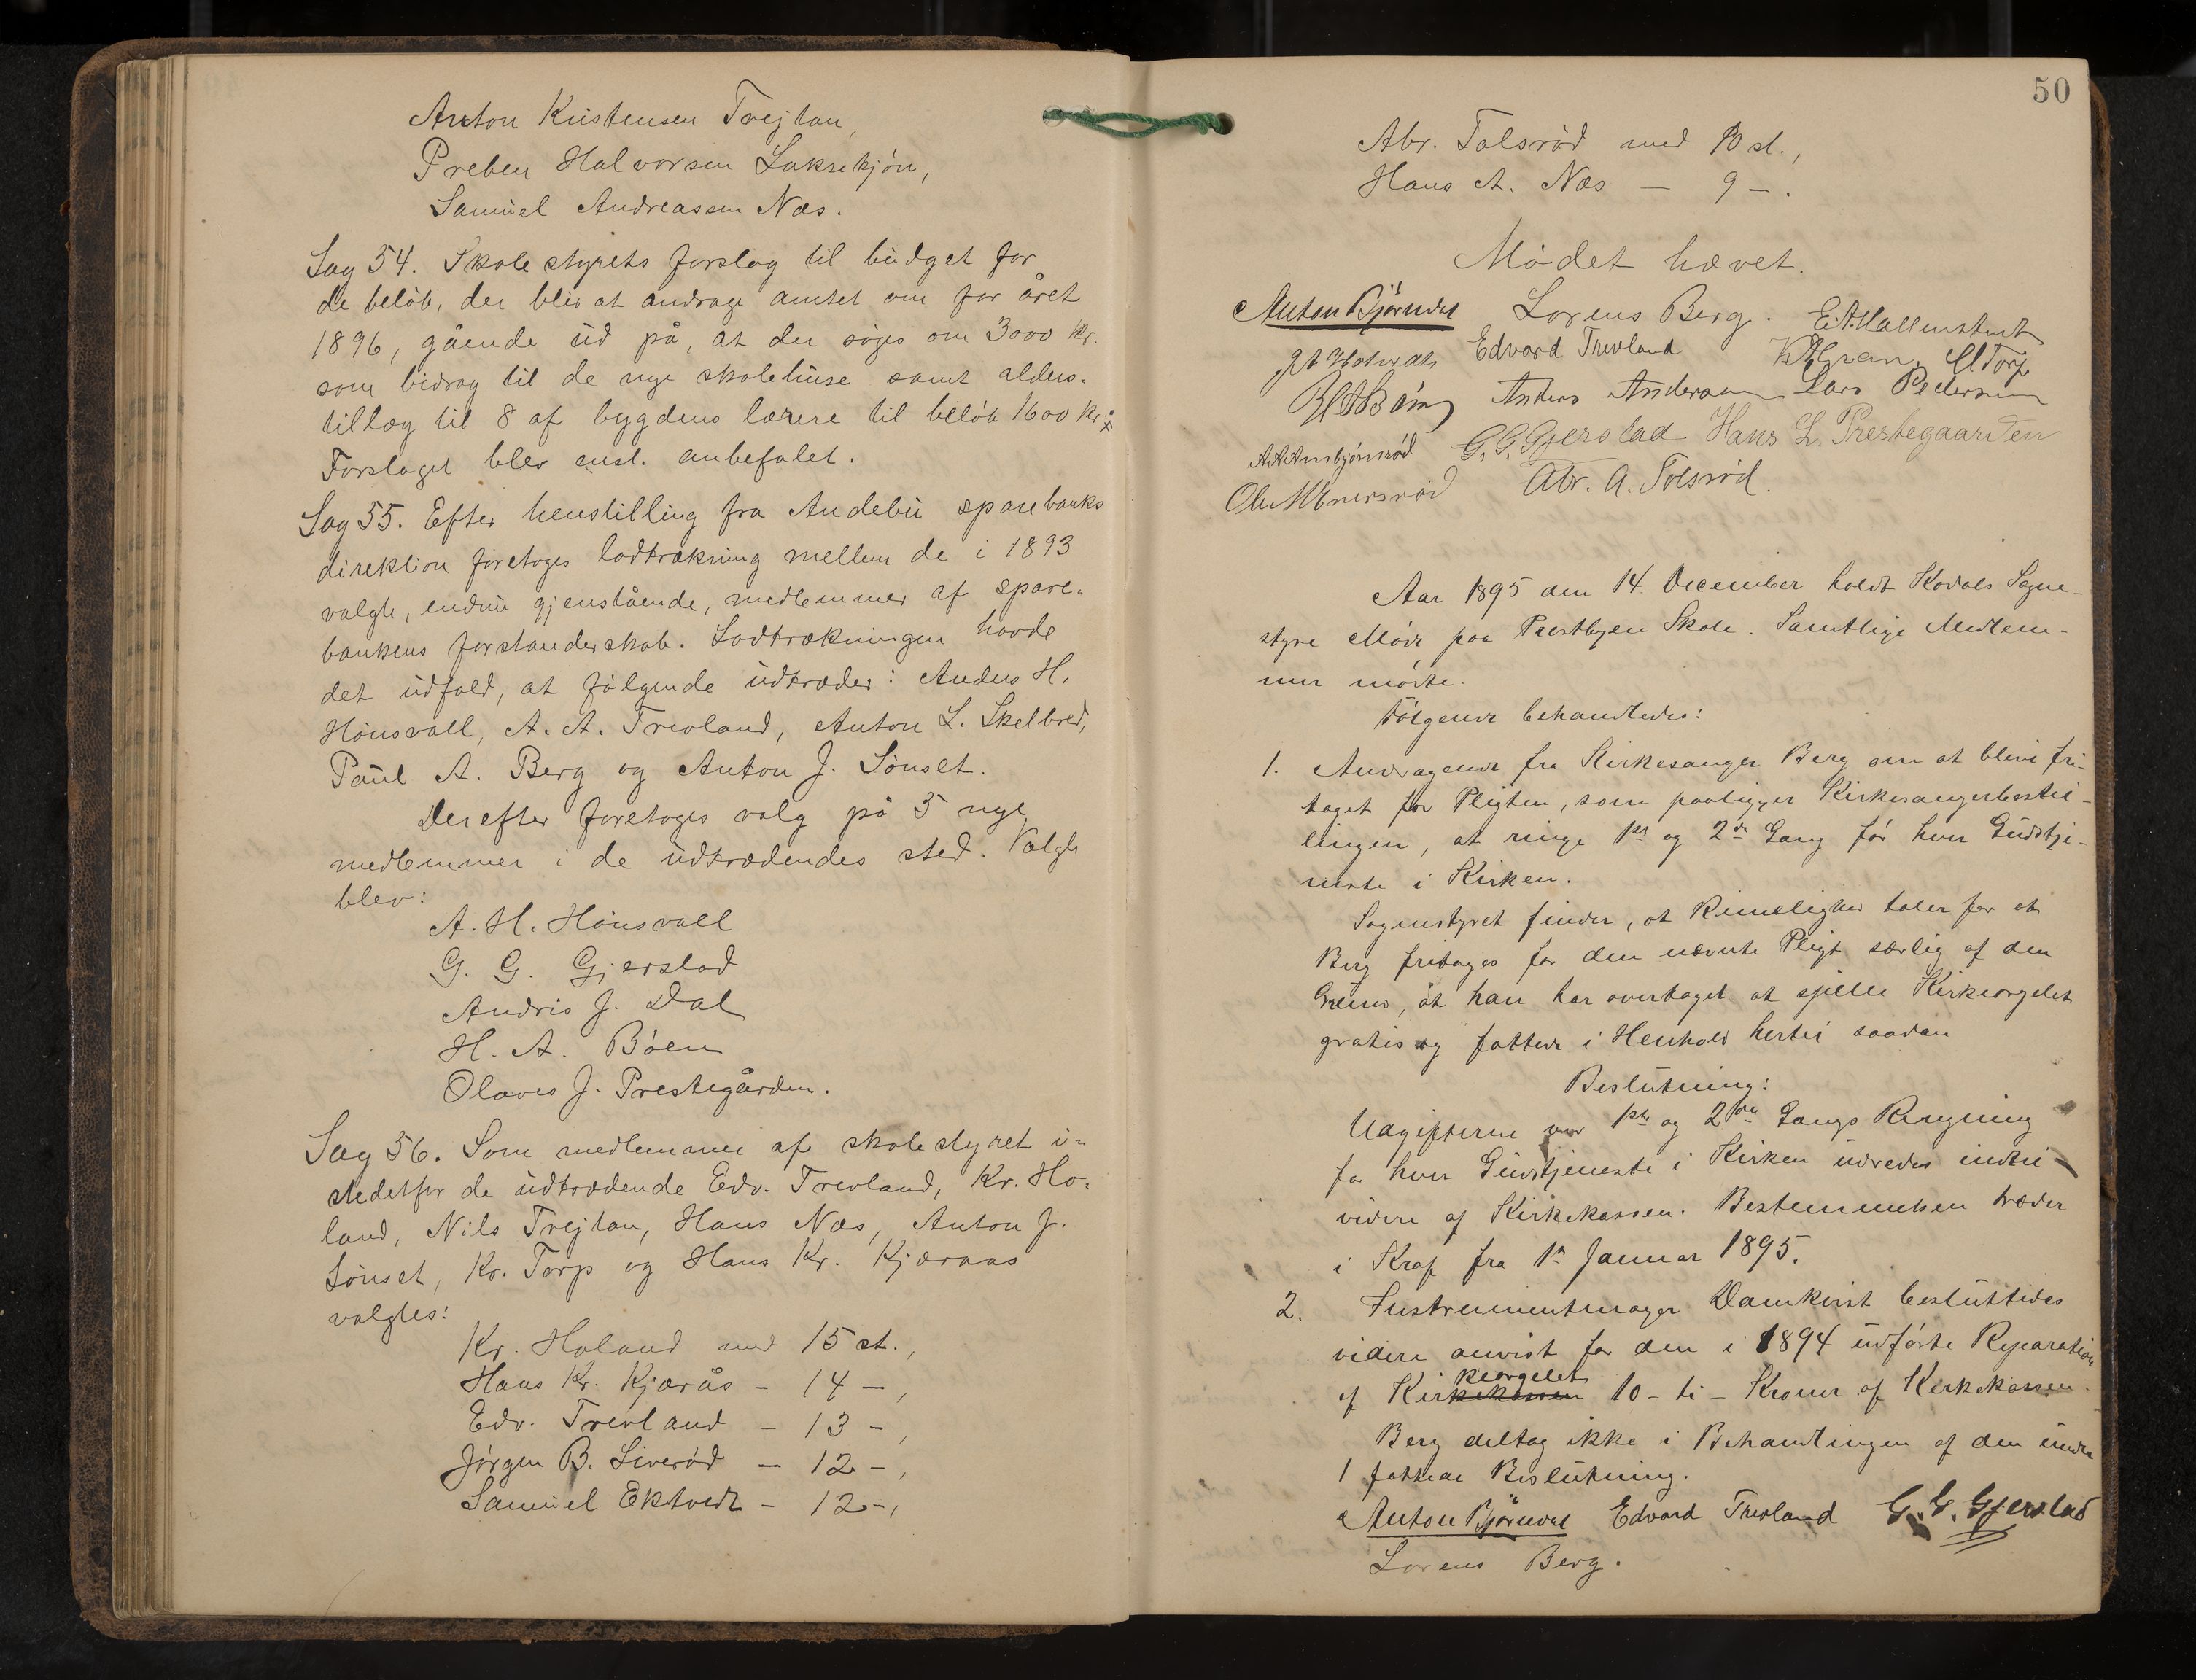 Anton Kristensen Trejtan,
Preben Halvorsen Laksekjön,
Samuel Andreassen Næs.
Sag 54. Skolestyrets forslag til budget for
de beløb, der blir at andrage amtet om for året
1896, gående ud på, at der søges om 3000 kr.
som bidrag til de nye skolehuse samt alders-
tillæg til 8 af bygdens lærere til beløb 1600 kr.
Forslaget blev enst. anbefalet.
Sag 55. Efter henstilling fra Andebu sparebanks
direktion foretoges lodtrækning mellem de i 1893
valgte, endnu gjenstående, medlemmer af spare-
bankens forstanderskab. Lodtrækningen havde
det udfald, at følgende udtræder: Anders H.
Hönsvall, A. A. Trevland, Anton L. Skelbred,
Paul A. Berg og Anton J. Sönset.
Derefter foretoges valg på 5 nye
medlemmer i de udtrædendes sted. Valgte
blev:
A. H. Hönsvall
G. G. Gjerstad
Andris J. Dal
H. A. Böen
Olaves J. Prestegården.
Sag 56. Som medlemmer af skolestyret i-
stedetfor de udtrædende Edv. Trevland, Kr. Ho-
land, Nils Trejtan, Hans Næs, Anton J.
Sönset, Kr. Torp og Hans Kr. Kjæraas
valgtes:
Kr. Holand med 15 st.,
Hans Kr. Kjærås - 14 -,
Edv. Trevland - 13 -,
Jörgen B. Liveröd - 12 -,
Samuel Ektvedt - 12 -,
50
Abr. Tolsröd med 10 st.,
Hans A. Næs - 9 -.
Mödet hævet.
Anton Bjørndal Lorens Berg. E. A. Hallenstvet
Edvard Trevland K. Gran. Torp
Anders Anderssen Lars Pedersen
A A Ambjörnröd G. G. Gjerstad Hans L. Prestegaarden
Ole M Enersröd Abr. A. Tolsröd.
Aar 1895 den 14. December holdt Kodals Sogne-
styre Möde paa Prestbyen Skole. Samtlige Medlem-
mer mödte.
Fölgende behandledes:
1. Andragende fra Kirkesanger Berg om at blive fri-
taget for Pligten, som paaligger Kirkesangerbestil-
lingen, at ringe 1ste og 2den Gang för hver Gudstje-
neste i Kirken.
Sognestyret finder, at Rimelighed taler for at
Berg fritages for den nævnte Pligt særlig af den
Grund, at han har overtaget at spille Kirkeorgelet
gratis og fattede i Henhold hertil saadan
Beslutning:
Udgifterne ved 1ste og 2den Gangs Ringning
for hver Gudstjeneste i Kirken udredes indtil
videre af Kirkekassen. Bestemmelsen træder
i Kraf fra 1ste Januar 1895.
2. Instrumentmager Damkvist besluttedes
videre anvist for den i 1894 udförte Reparation
keorgelet
af Kirkekassen 10 - ti - Kroner af Kirkekassen.
Berg deltog ikke i Behandlingen af den under
1 fattede Beslutning.
Anton Bjørndal Edvard Trevland G. G. Gjerstad
Lorens Berg.